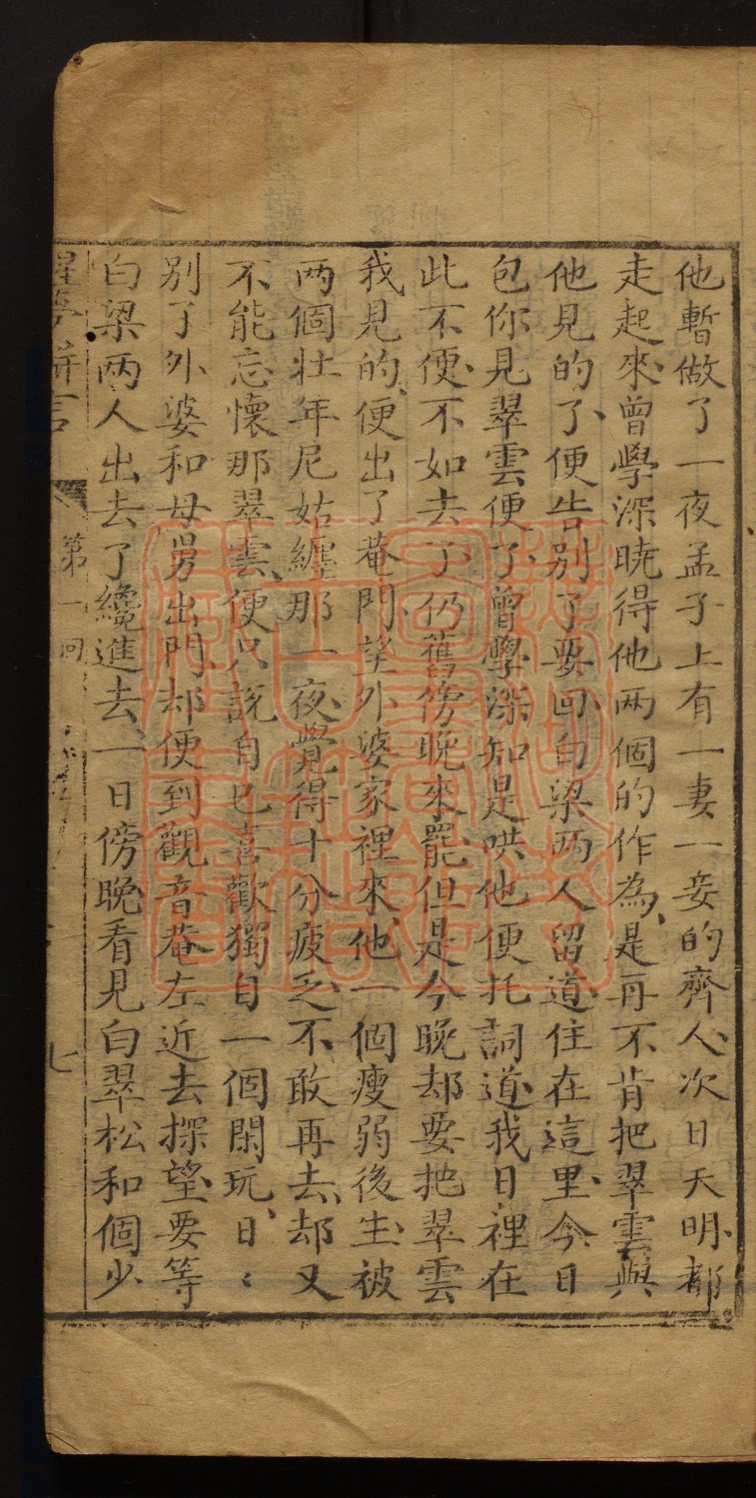 他暫做了一夜孟子上有一妻一妾的齊人、次日天明、都
走起來、曾學深曉得他两個的作為、是再不肯把翠雲與
他見的了、便告别了要回、白梁两人留道、住在這里、今日
包你見翠雲便了、曾學深知是哄他、便托詞道、我日裡在
此不便、不如去了、仍舊傍晚來罷、但是今晚却要把翠雲
我見的、便出了菴門、望外婆家裡來、他一個瘦弱後生、被
两個壮年尼姑纏那一夜、覺得十分疲乏、不敢再去、却又
不能忘懷那翠雲、便只說自已喜歡獨自一個閑玩、日〻
别了外婆和母舅出門、却便到觀音菴左近去探望、要等
白梁两人出去了纔進去、一日傍晚看見白翠松和個少
醒夢駢言
第一回
七